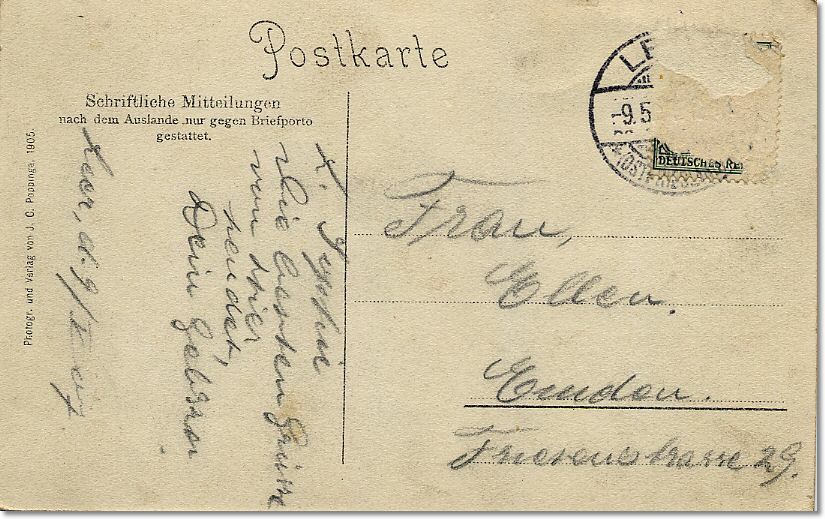 Postkarte
Schriftliche Mitteilungen
nach dem Auslande nur gegen Briefporto
gestattet.
Photogr. und Verlag von J. C. Poppinga. 1905.
Leer, d. 9/
L.
Die besten Grüsse
von hier
sendet,
Dein
Frau,
Ellen.
Emden.
Friesenstrasse 29.
LE
-9.5
DEUTSCHES REI